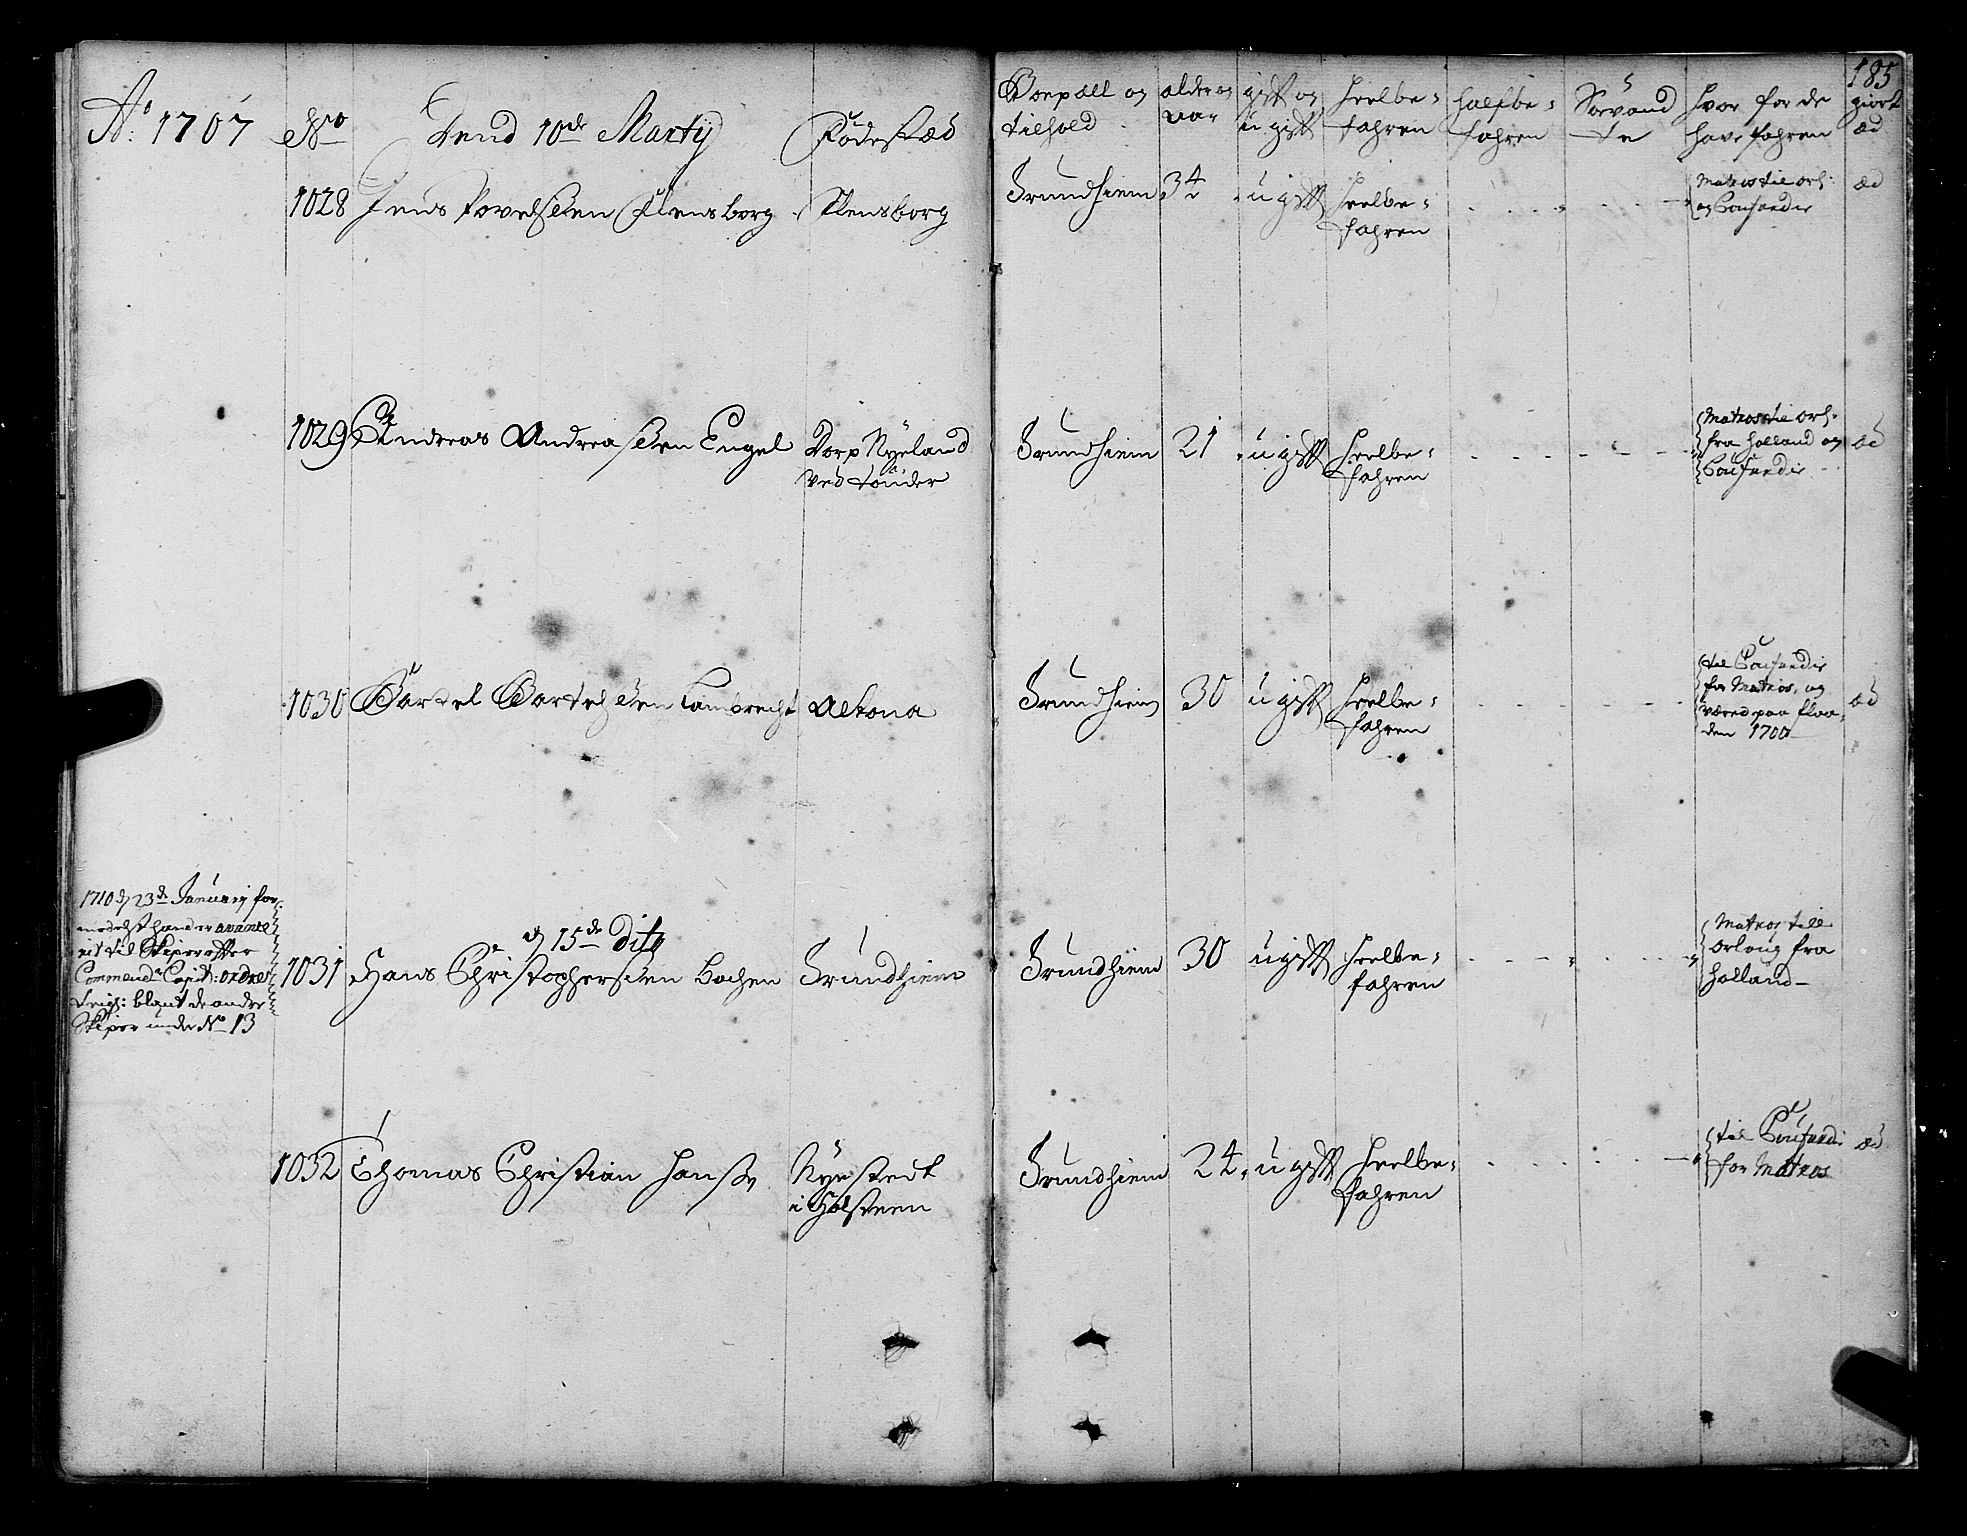 Ao 1707
No
Dend 10de Martij
Födestæd
Boepæll og
tilhold
alder og
aar
gift og
ugift
heelbe=
fahren
halfbe=
fahren
Sövand
te
hvor for de
have fahren
185
giort
æd
1028 Jens Povelssen Flensborg
Flensborg
Trundhiem 34 ugift heelbe=
fahren
Matros til orl:
og Coufardie
æd
1029 Andreas Andreassen Engel
Dorp Nyeland
ved Tönder
Trundhiem 21 ugift heelbe=
fahren
Matros til orl:
fra holland og
Coufardie
æd
1030 Bartel Bartelssen Lambrecht Altona
Trundhiem 30 ugift heelbe=
fahren
til Coufardie
for Matros, og
været paa flaa
den 1700
æd
1710 d 23de Januarij for
medelst hand er avance
rit til Skiper efter
Commend: Capit: ordre
blant de andre
Skiper under No 13
d 15de dito
1031 Hans Christopherssen Bochen Trundhiem
Trundhiem 30 ugift heelbe=
fahren
Matros till
orloug fra
holland
1032 Thomas Christian Hanss
Nyestedt
i Holsteen
Trundhiem 24 ugift heelbe=
fahren
til Coufardi
for Matros
æd